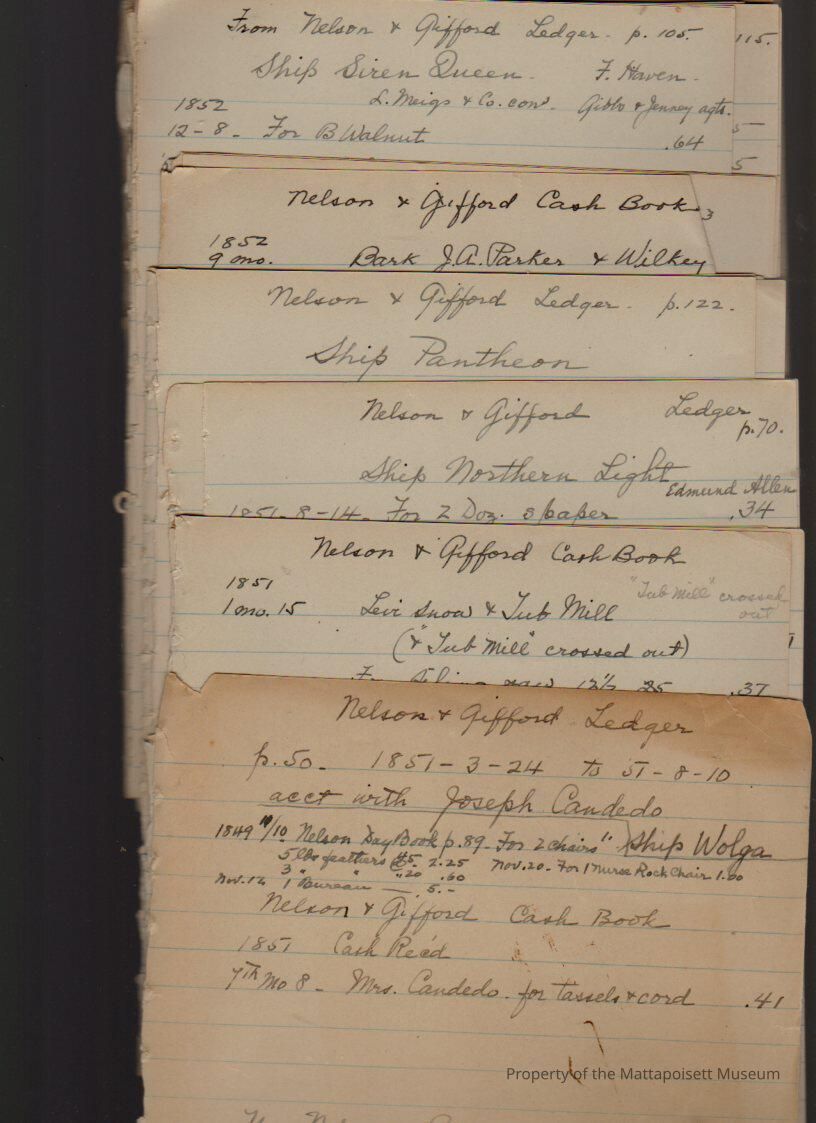 From Nelson & Gifford Ledger. p. 105. 115.
Ship Siren Queen. F. Haven.
1852 L. Meigs & Co. con. Gibbs & Jenney agts.
12-8- For B Walnut .64
5
5
Nelson & Gifford Cash Book 3
1852
9 mo. Bark J.A. Parker & Wilkey
Nelson & Gifford Ledger. p.122.
Ship Pantheon
Nelson & Gifford Ledger
p.70.
Ship Northern Light
Edmund Allen
1851-8-14- For 2 Doz. s paper .34
Nelson & Gifford Cash Book
1851 "Tub Mill" crossed
out
1 mo. 15 Levi Snow & Tub Mill
("& Tub Mill" crossed out)
filing saw 12½ 25 .37
Nelson & Gifford Ledger
p.50- 1851-3-24 to 51-8-10
acct with Joseph Candedo
1849 10/10 Nelson Day Book p.89- For 2 chairs Ship Wolga
5 lbs feathers 45 2.25 Nov. 20- For 1 Nurse Rock Chair 1.00
3 " " .20 .60
Nov. 12 1 Bureau — 5.-
Nelson & Gifford Cash Book
1851 Cash Rec'd
7th Mo 8- Mrs. Candedo- for tassels & cord .41
Property of the Mattapoisett Museum